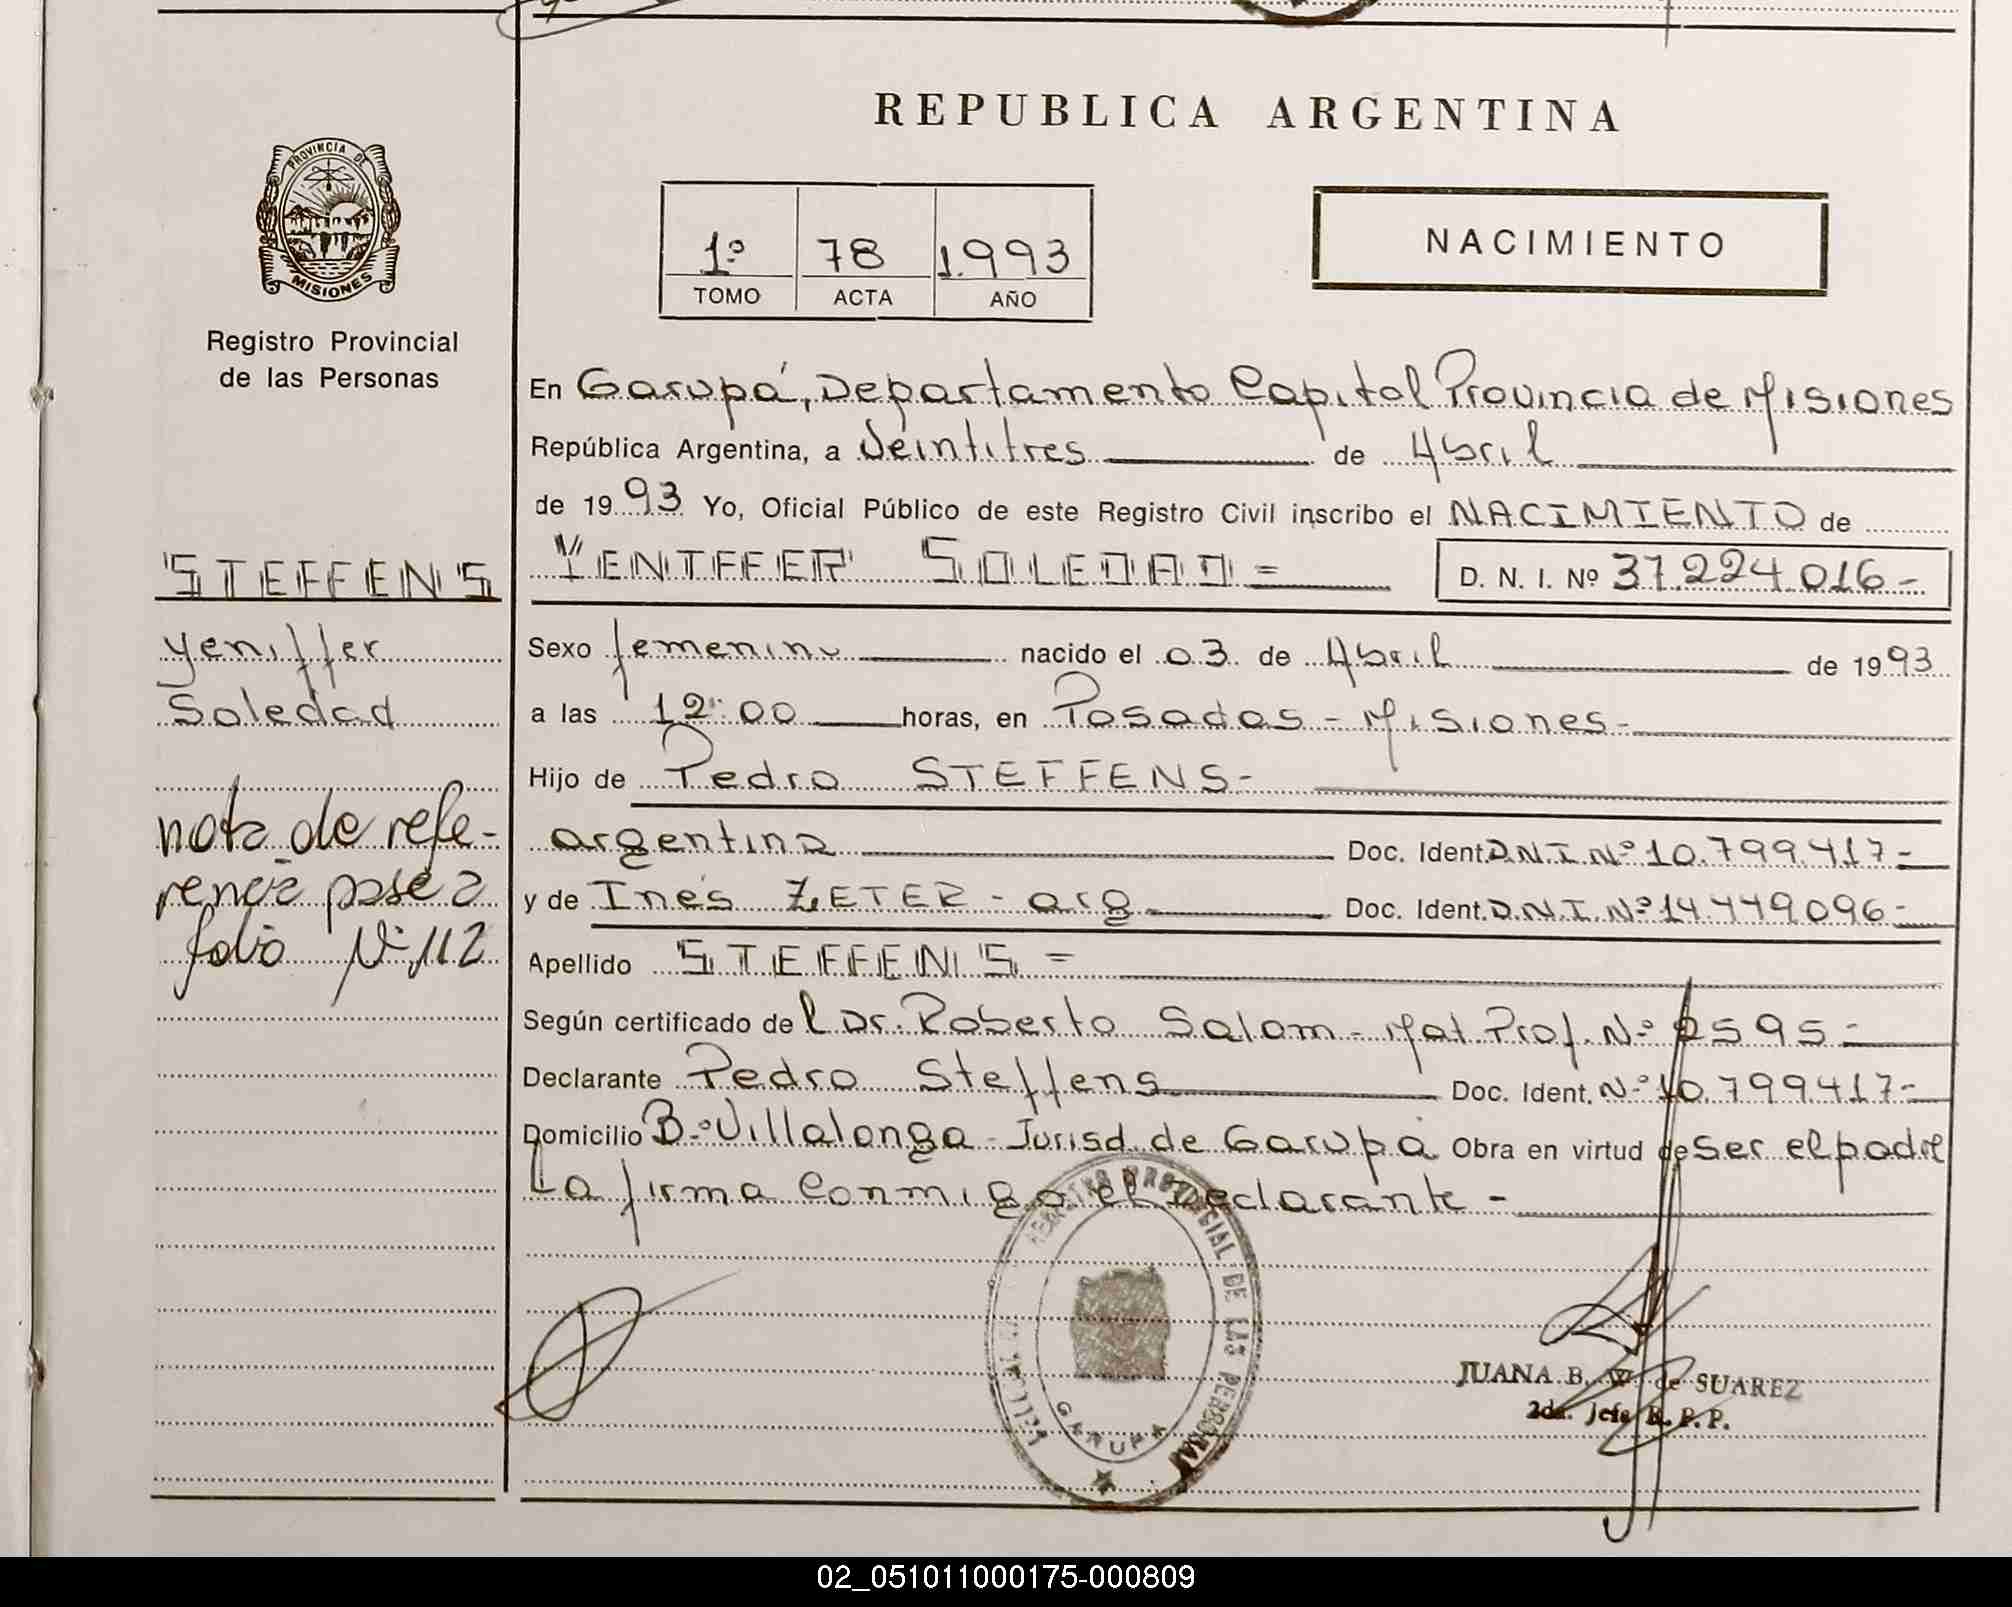 REPUBLICA ARGENTINA
PROVINCIA DE
MISIONES
1º 78 1.993
TOMO ACTA AÑO
NACIMIENTO
Registro Provincial
de las Personas
En Garupá, Departamento Capital Provincia de Misiones
República Argentina, a Veintitres de Abril
de 1993 Yo, Oficial Público de este Registro Civil inscribo el NACIMIENTO de
YENIFFER SOLEDAD = D. N. I. Nº 37.224.016-
STEFFENS
Yeniffer
Soledad
nota de refe-
rencia pase a
folio Nº 112
Sexo femenino nacido el 03 de Abril de 1993
a las 12:00 horas, en Posadas - Misiones-
Hijo de Pedro STEFFENS-
argentina Doc. Ident. D.N.I. Nº 10.799.417-
y de Inés ZETER - arg Doc. Ident. D.N.I. Nº 14.449.096-
Apellido STEFFENS =
Según certificado del Dr. Roberto Salom - Mat. Prof. Nº 2595-
Declarante Pedro Steffens Doc. Ident. Nº 10.799.417-
Domicilio Bº Villalonga - Jurisd. de Garupá Obra en virtud de Ser el padre
La firma Conmigo el Declarante -
REGISTRO PROVINCIAL DE LAS PERSONAS
GARUPA
JUANA B. de SUAREZ
2da. Jefe R. P. P.
02_051011000175-000809